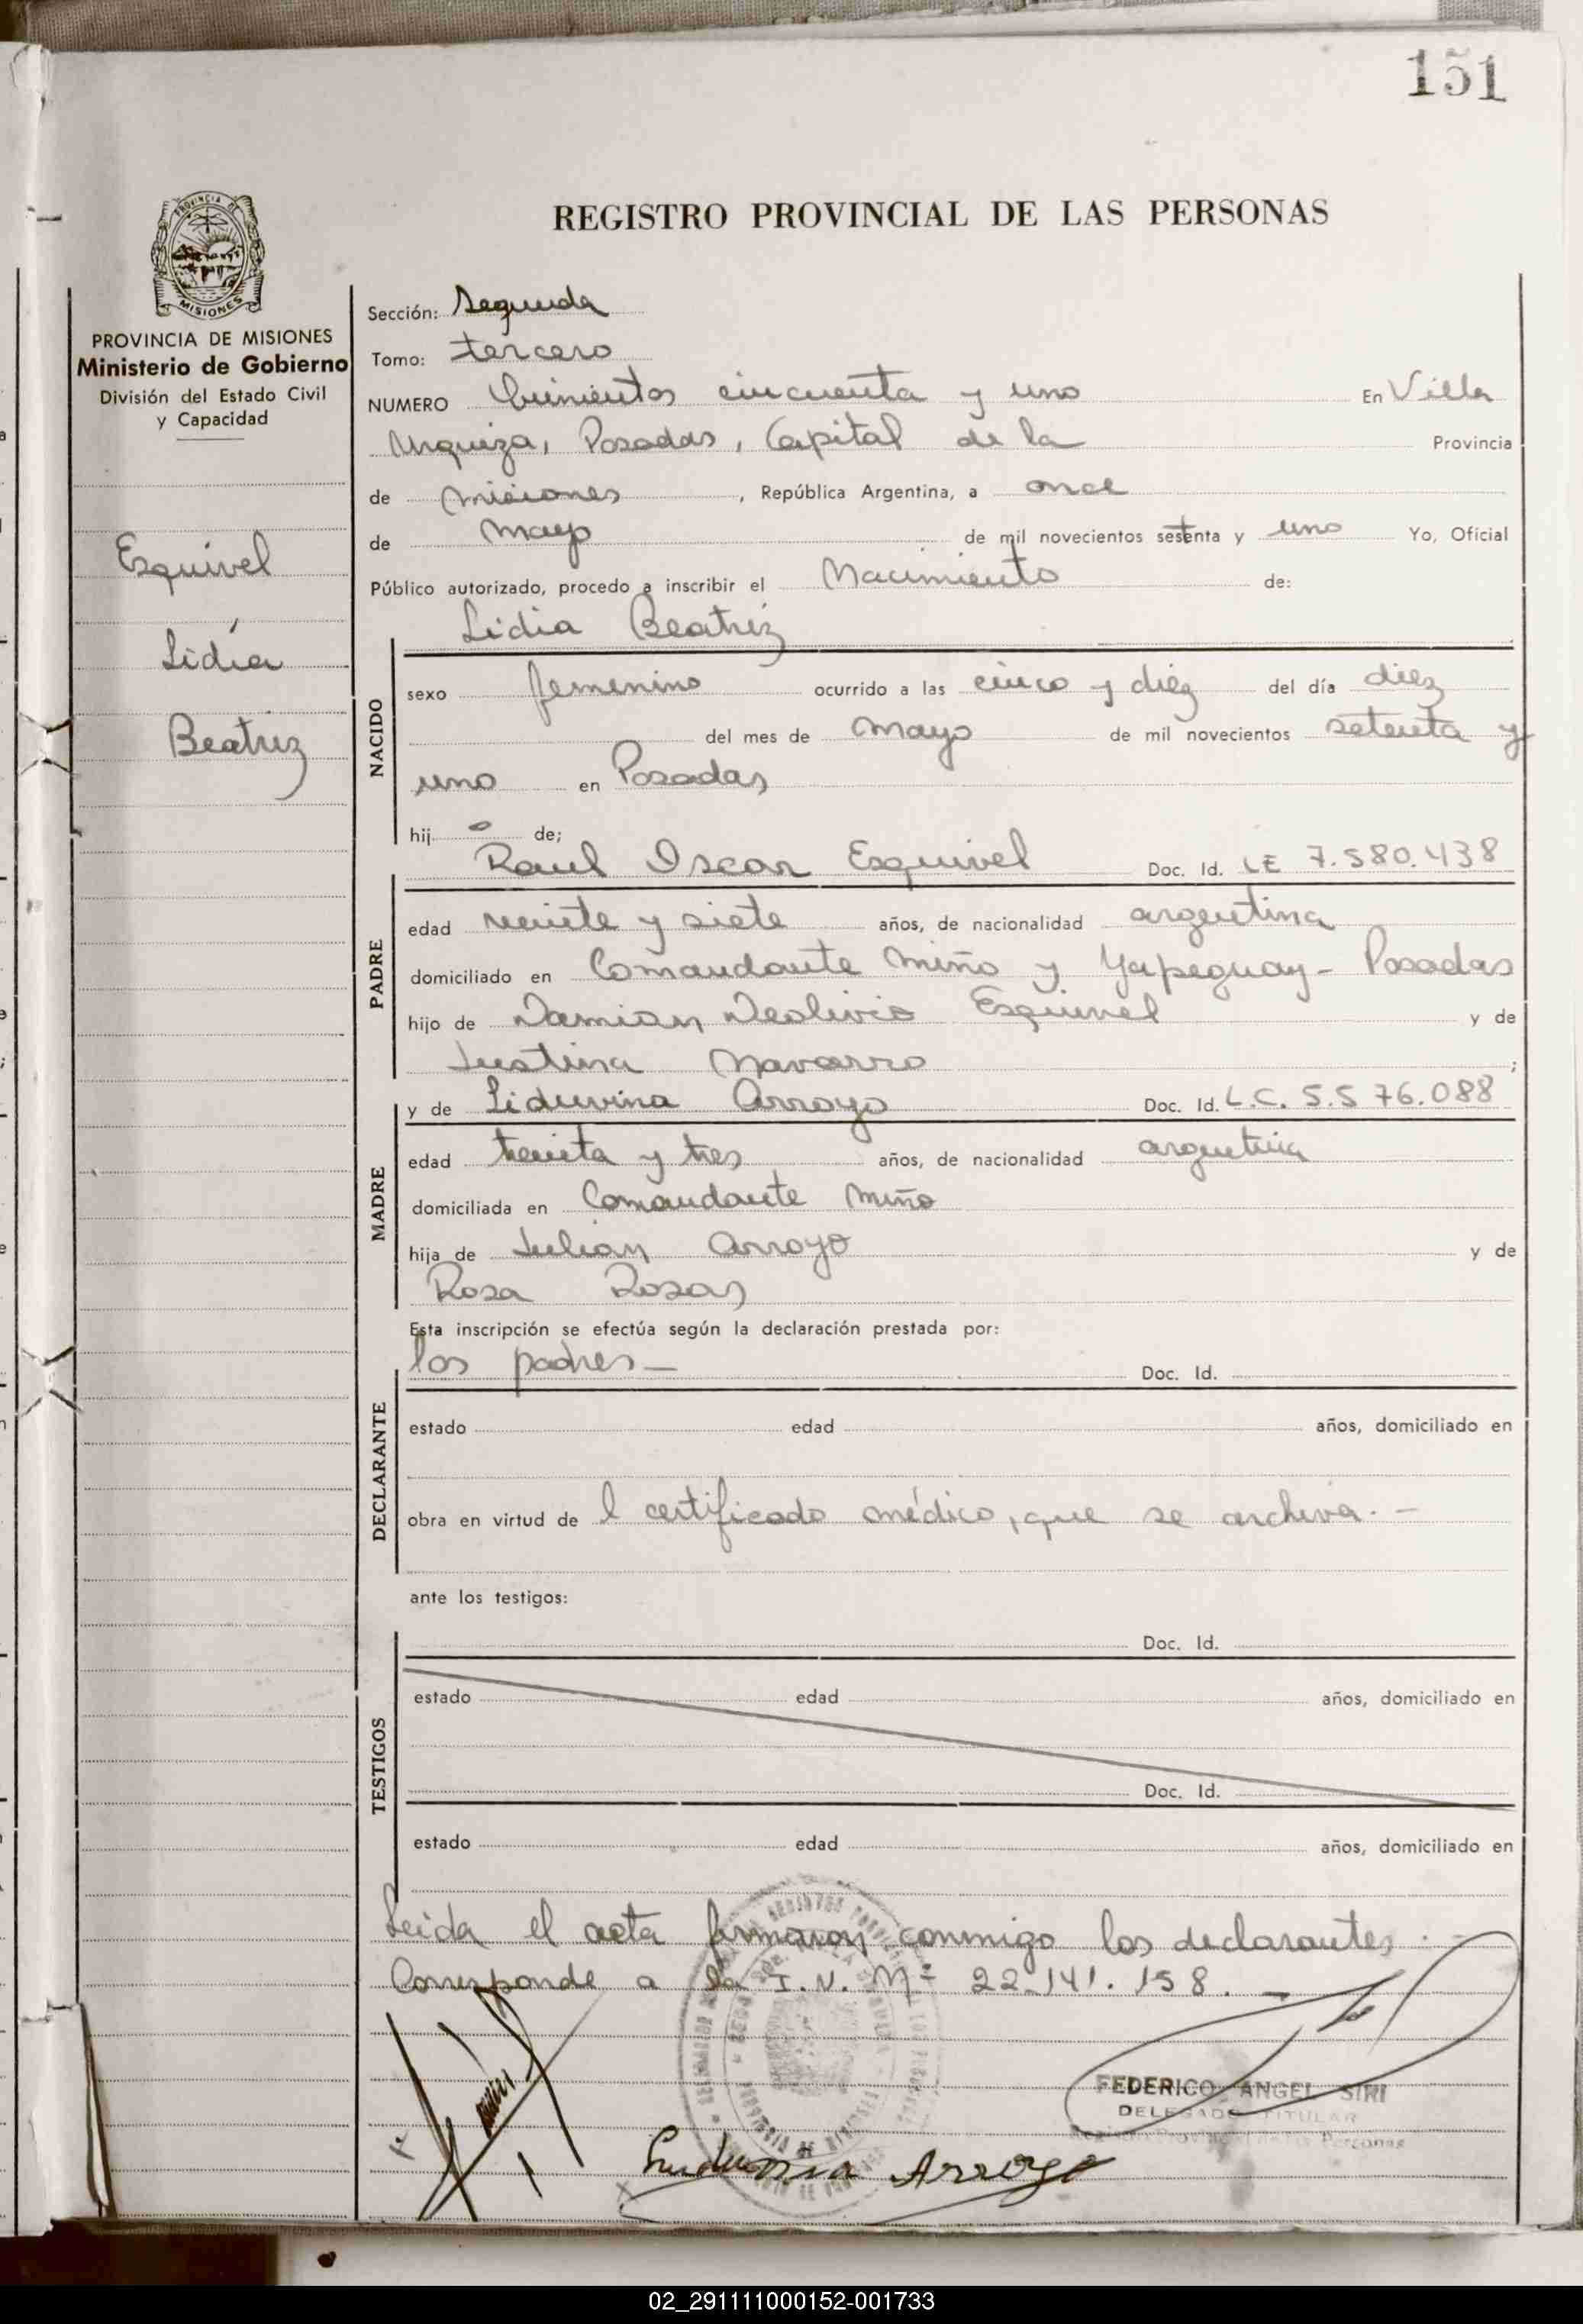 151
REGISTRO PROVINCIAL DE LAS PERSONAS
PROVINCIA DE
MISIONES
PROVINCIA DE MISIONES
Ministerio de Gobierno
División del Estado Civil
y Capacidad
Esquivel
Lidia
Beatriz
Sección: Segunda
Tomo: tercero
NUMERO Quinientos cincuenta y uno En Villa
Urquiza, Posadas, Capital de la Provincia
de Misiones, República Argentina, a once
de mayo de mil novecientos setenta y uno Yo, Oficial
Público autorizado, procedo a inscribir el Nacimiento de:
Lidia Beatriz
NACIDO
sexo femenino ocurrido a las cinco y diez del día diez
del mes de Mayo de mil novecientos setenta y
uno en Posadas
hij o de;
Raul Oscar Esquivel Doc. Id. LE 7.580.438
PADRE
edad veinte y siete años, de nacionalidad argentina
domiciliado en Comandante Miño y Yapeguay - Posadas
hijo de Damian Esquivel y de
Justina Navarro ;
y de Liduvina Arroyo Doc. Id. L.C. 5.576.088
MADRE
edad treinta y tres años, de nacionalidad argentina
domiciliada en Comandante Miño
hija de Julian Arroyo y de
Rosa Rosas
Esta inscripción se efectúa según la declaración prestada por:
los padres — Doc. Id.
DECLARANTE
estado edad años, domiciliado en
obra en virtud de l certificado médico, que se archiva. -
ante los testigos:
Doc. Id.
TESTIGOS
estado edad años, domiciliado en
Doc. Id.
estado edad años, domiciliado en
Leida el acta firmaron conmigo los declarantes. -
Corresponde a la I.N. Nº 22.141.158. -
FEDERICO ANGEL SIRI
DELEGADO TITULAR
Arroyo
02_291111000152-001733